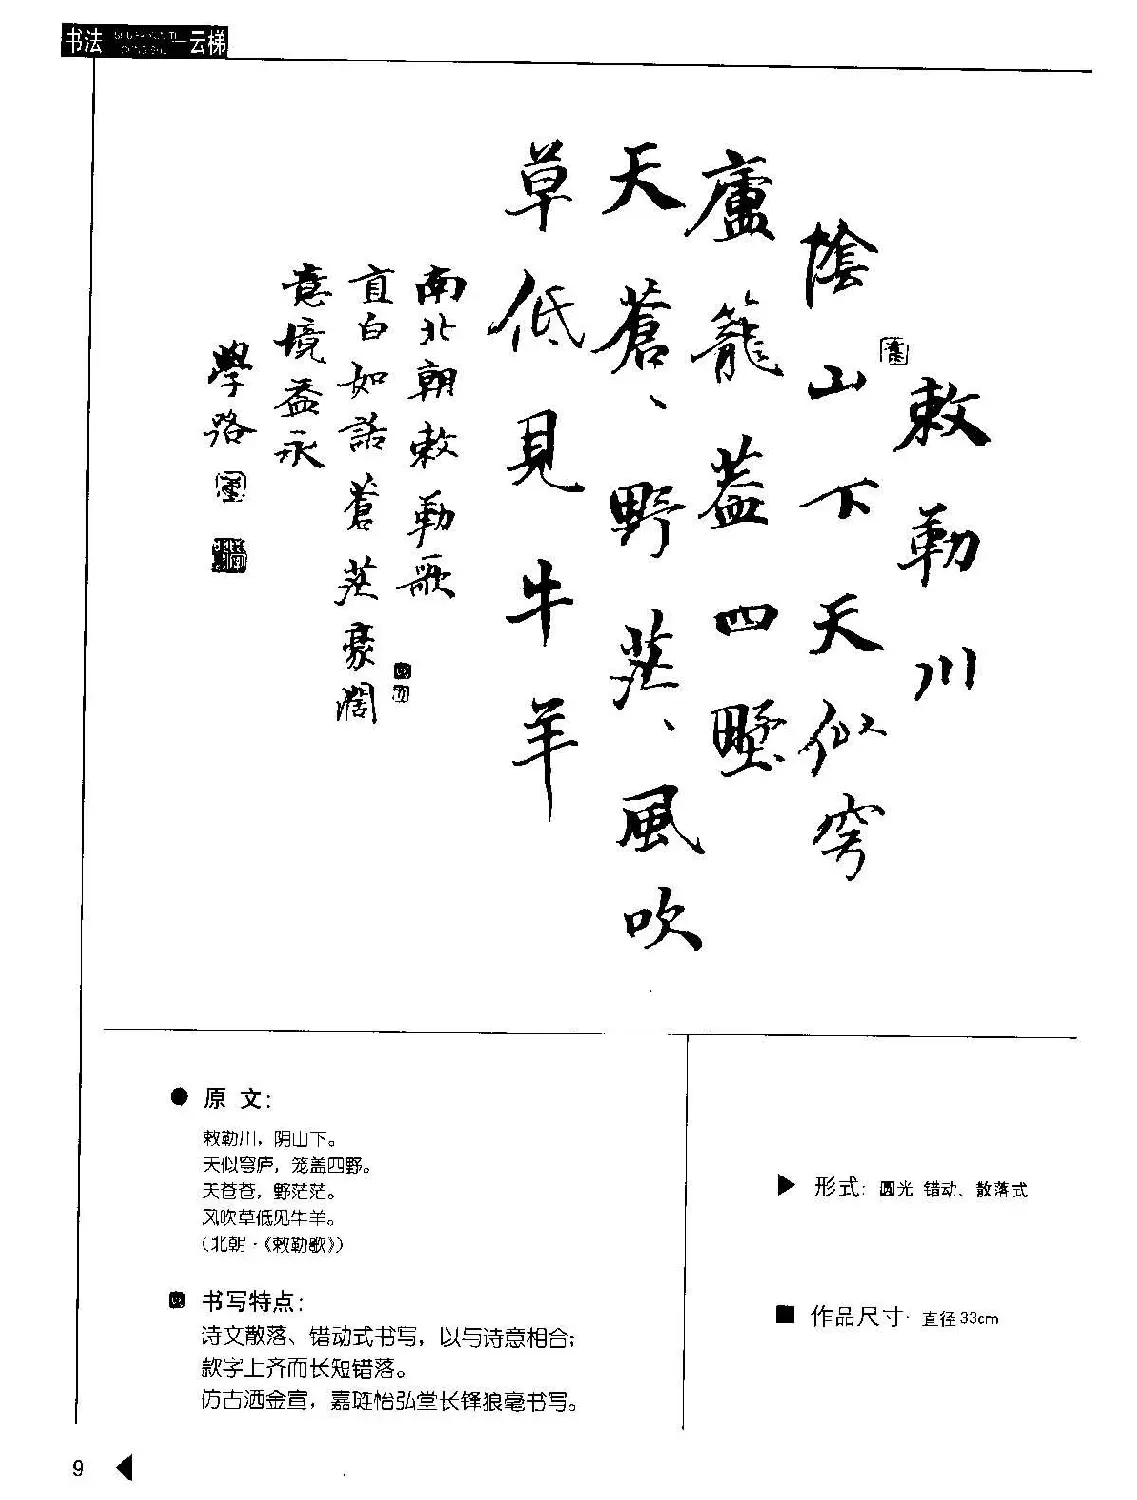 书法 云梯
敕勒川
陰山下天似穹
廬籠蓋四壄
天蒼、野茫、風吹
草低見牛羊
南北朝敕勒歌
直白如話蒼茫豪闊
意境益永
學路
原 文：
敕勒川，阴山下。
天似穹庐，笼盖四野。
天苍苍，野茫茫。
风吹草低见牛羊。
（北朝·《敕勒歌》）
书写特点：
诗文散落、错动式书写，以与诗意相合；
款字上齐而长短错落。
仿古洒金宣，嘉珽怡弘堂长锋狼毫书写。
形式：圆光 错动、散落式
作品尺寸·直径33cm
9